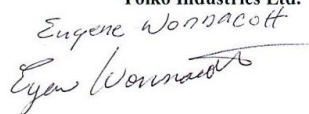 Tolko Industries Ltd.
Eugene Wonnacott
Eugen Wonnacott